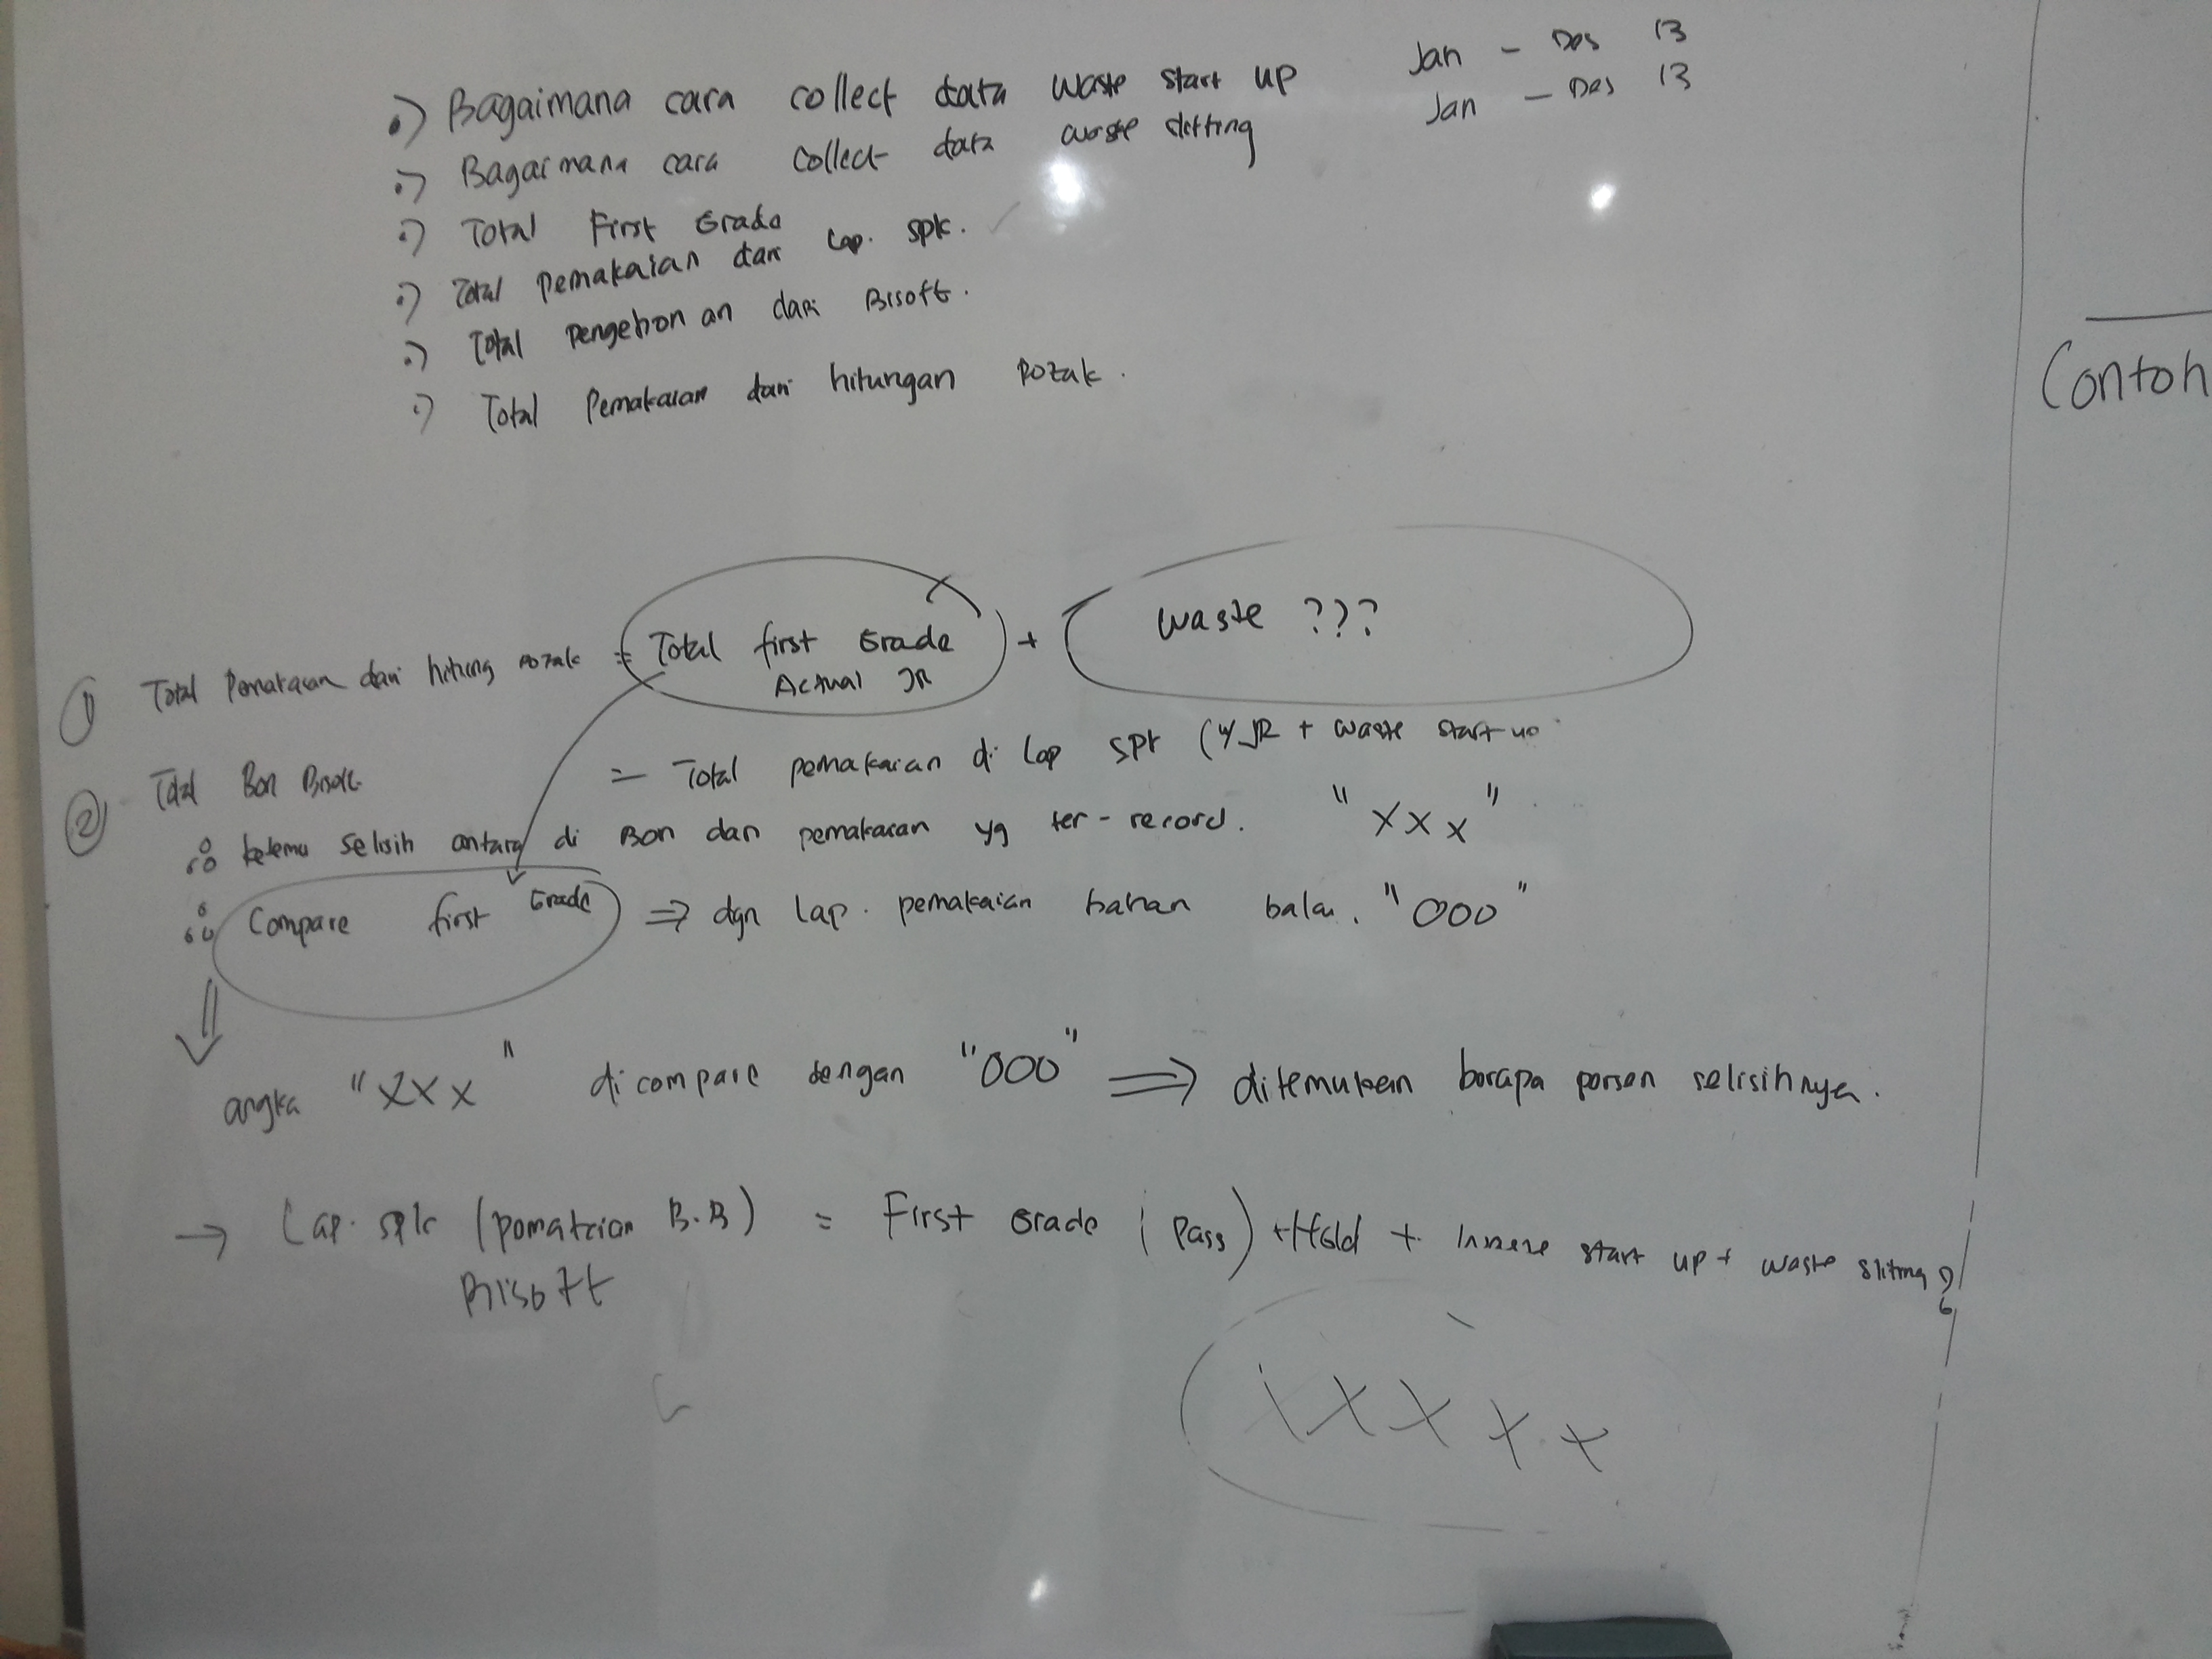 Bagaimana cara collect data waste start up Jan - Des 13
Bagaimana cara collect data waste Jan - Des 13
Total First Grade
Total Pemakaian dari Lap. SPK.
Total Pengebonan dari Bisoft.
Total Pemakaian dari hitungan Rozak.
Contoh
① Total Pemakaian dari hitung Rozak = Total first Grade + Waste ???
Actual JR
② Total Bon Bisoft = Total pemakaian di Lap SPK (4 JR + waste start up
∴ ketemu selisih antara di Bon dan pemakaian yg ter-record. "XXX"
∴ Compare first Grade ⇒ dgn Lap. pemakaian bahan baku. "000"
angka "XXX" di compare dengan "000" ⇒ ditemukan berapa persen selisihnya.
→ Lap. SPK (pemakaian B.B) = First Grade (Pass) + Hold + start up + waste sliting
Bisoft
XXXX